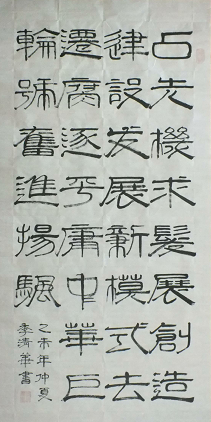 占先機求髮展創造
建設发展新模式去
遷腐逐平庸中華巨
輪號奮進揚
乙未年仲夏
清華書